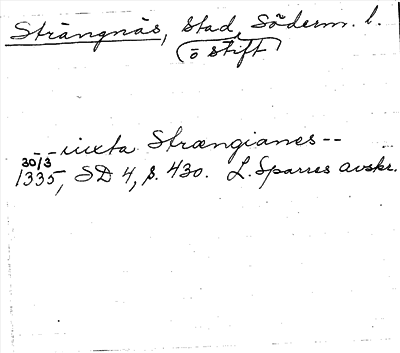 Strängnäs, stad, Söderm. l.
(o stift)
-- iuxta Strængianes --
30/3
1335, SD 4, s. 430. L. Sparres avskr.